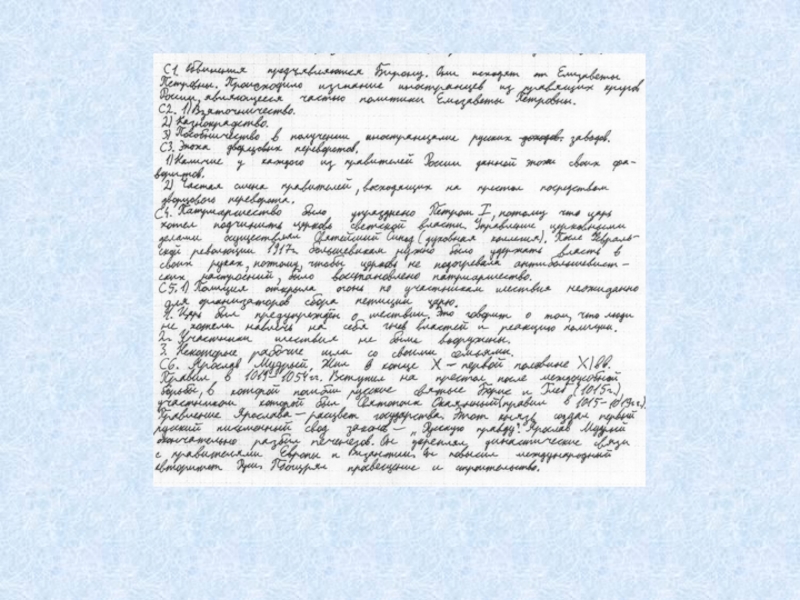 С1. Обвинения предъявляются Бирону. Они исходят от Елизаветы
Петровны. Происходило изгнание иностранцев из правящих кругов
России, являющееся частью политики Елизаветы Петровны.
С2. 1) Взяточничество.
2) Казнокрадство.
3) Пособничество в получении иностранцами русских доходов заводов.
С3. Эпоха дворцовых переворотов.
1) Наличие у каждого из правителей России данной эпохи своих фа-
воритов.
2) Частая смена правителей, восходящих на престол посредством
дворцового переворота.
С4. Патриаршество было упразднено Петром I, потому что царь
хотел подчинить церковь светской власти. Управление церковными
делами осуществлял Святейший Синод (духовная коллегия). После Февраль-
ской революции 1917г. большевикам нужно было удержать власть в
своих руках, поэтому, чтобы церковь не подогревала антибольшевист-
ских настроений, было восстановлено патриаршество.
С5. 1) Полиция открыла огонь по участникам шествия неожиданно
для организаторов сбора петиции царю.
1. Царь был предупреждён о шествии. Это говорит о том, что люди
не хотели навлечь на себя гнев властей и реакцию полиции.
2. Участники шествия не были вооружены.
3. Некоторые рабочие шли со своими семьями.
С6. Ярослав Мудрый. Жил в конце X – первой половине XI вв.
Правил в 1019-1054гг. Вступил на престол после междоусобной
борьбы, в которой погибли русские святые Борис и Глеб (1015г.),
участником которой был Святополк Окаянный (правил в 1015-1019гг.).
Правление Ярослава – расцвет государства. Этот князь создал первый
русский письменный свод закона – „Русскую правду". Ярослав Мудрый
окончательно разбил печенегов. Он укреплял династические связи
с правителями Европы и Византии. Он повысил международный
авторитет Руси. Поощрял просвещение и строительство.